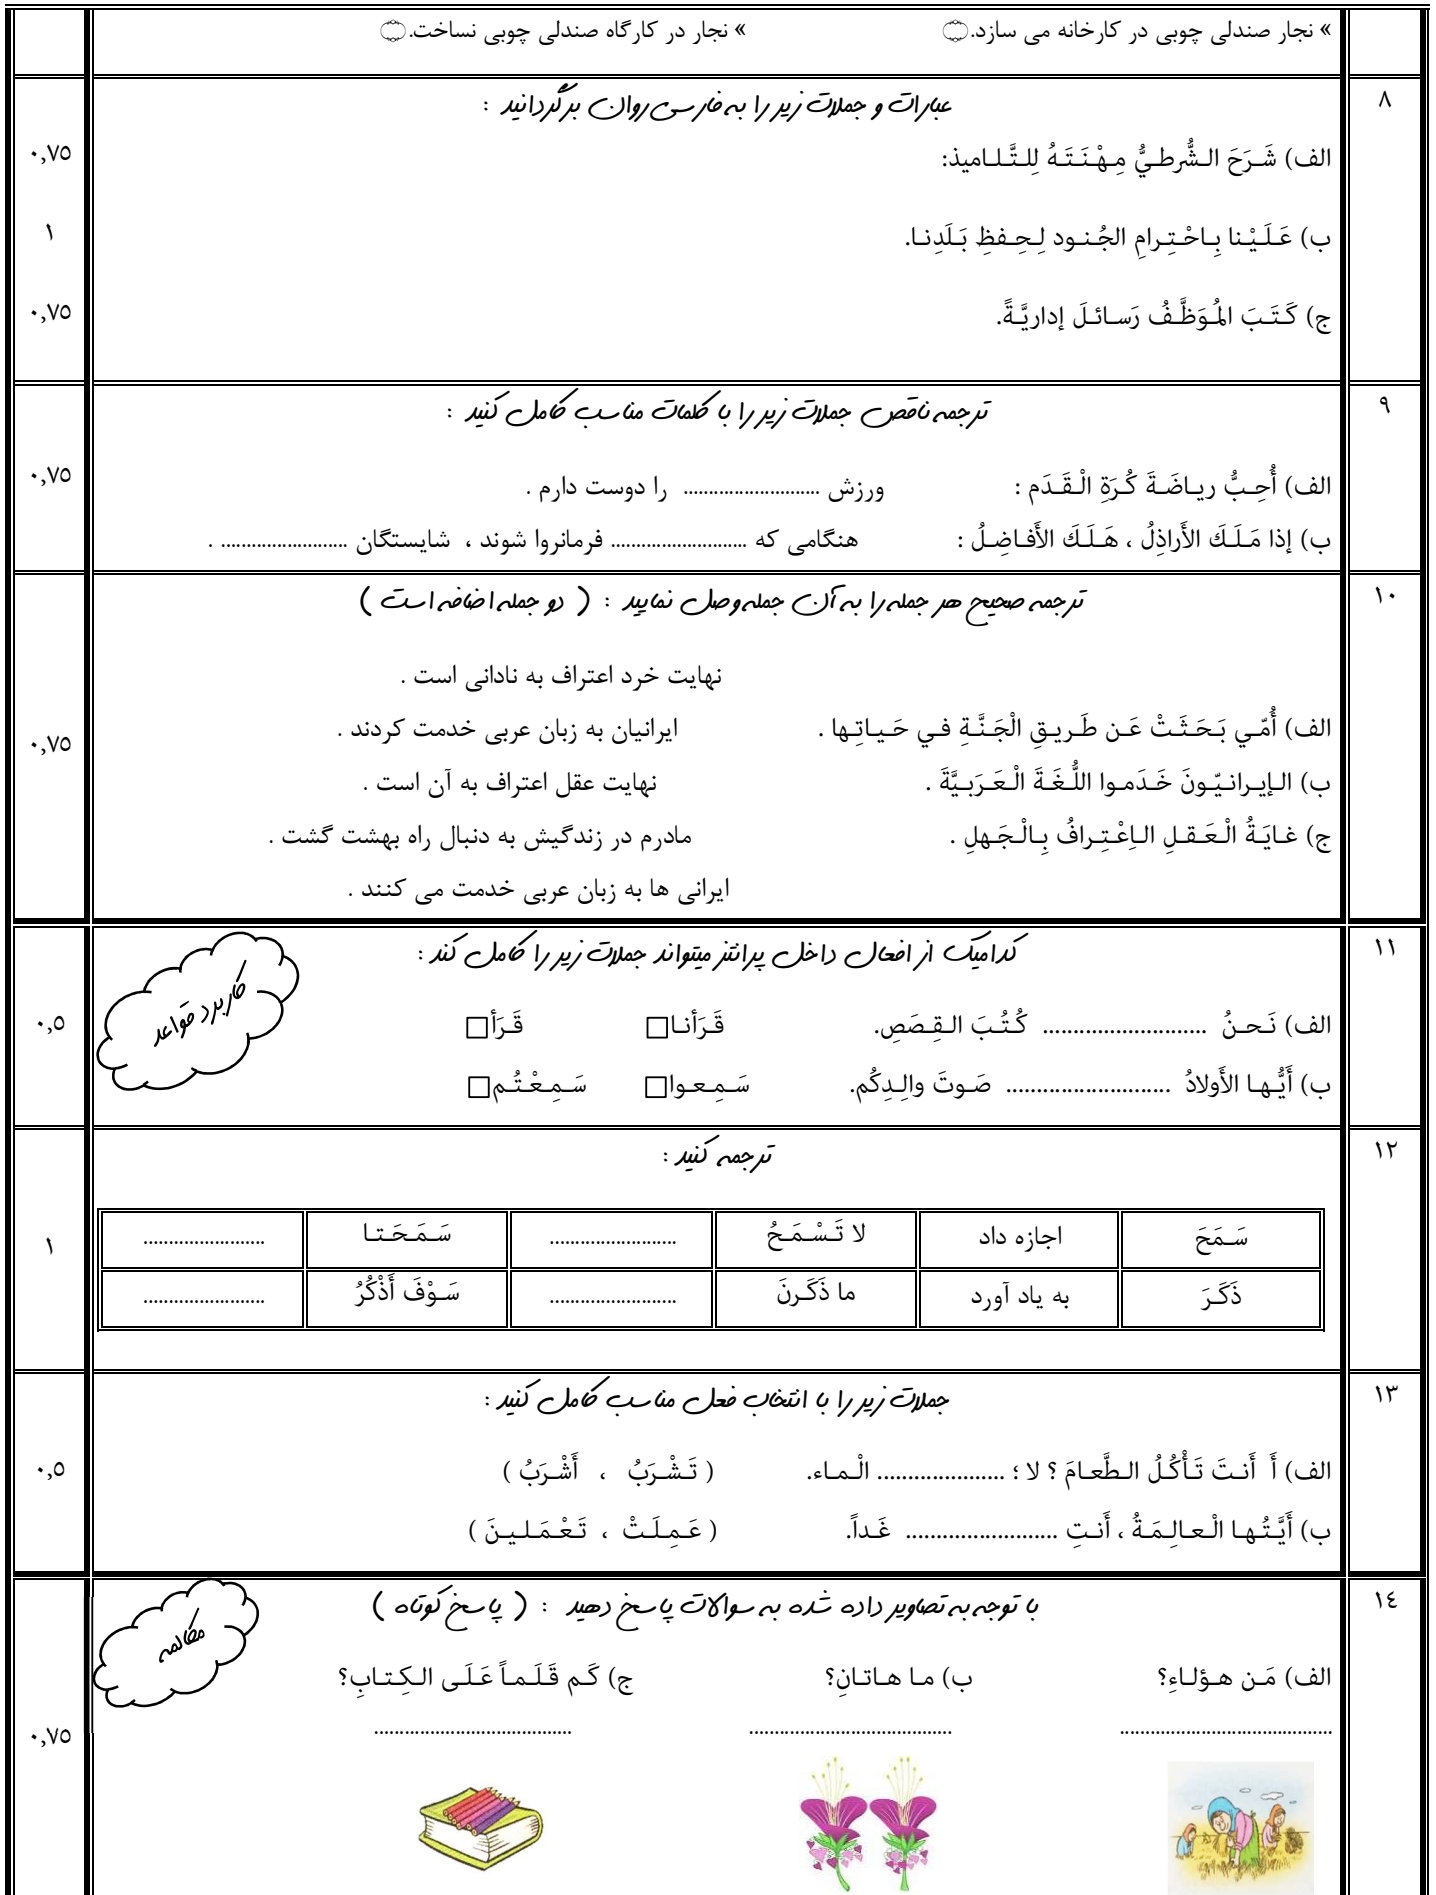 » نجار صندلی چوبی در کارخانه می سازد.۝ » نجار در کارگاه صندلی چوبی نساخت.۝
۸ عبارات و جملات زیر را به فارسی روان برگردانید :
الف) شَرَحَ الشُّرطيُّ مِهْنَتَهُ لِلتَّلاميذ: ۰,۷۵
ب) عَلَيْنا بِاحْتِرامِ الجُنود لِحِفظِ بَلَدِنا. ۱
ج) كَتَبَ المُوَظَّفُ رَسائلَ إداريَّةً. ۰,۷۵
۹ ترجمه ناقص جملات زیر را با کلمات مناسب کامل کنید :
الف) أُحِبُّ رياضَةَ كُرَةِ الْقَدَم : ورزش ........................... را دوست دارم . ۰,۷۵
ب) إذا مَلَكَ الأَراذِلُ ، هَلَكَ الأَفاضِلُ : هنگامی که ........................... فرمانروا شوند ، شایستگان ......................... .
۱۰ ترجمه صحیح هر جمله را به آن جمله وصل نمایید : ( دو جمله اضافه است )
نهایت خرد اعتراف به نادانی است .
الف) أُمّي بَحَثَتْ عَن طَريقِ الْجَنَّةِ في حَياتِها . ایرانیان به زبان عربی خدمت کردند . ۰,۷۵
ب) الإيرانيّونَ خَدَموا اللُّغَةَ الْعَرَبيَّةَ . نهایت عقل اعتراف به آن است .
ج) غايَةُ الْعَقلِ الاِعْتِرافُ بِالْجَهلِ . مادرم در زندگیش به دنبال راه بهشت گشت .
ایرانی ها به زبان عربی خدمت می کنند .
۱۱ کدامیک از افعال داخل پرانتز میتواند جملات زیر را کامل کند :
کاربرد قواعد
الف) نَحنُ ........................... كُتُبَ القِصَصِ. قَرَأنا□ قَرَأ□ ۰,۵
ب) أَيُّها الأَولادُ ........................... صَوتَ والِدِكُم. سَمِعوا□ سَمِعْتُم□
۱۲ ترجمه کنید :
سَمَحَ اجازه داد لا تَسْمَحُ ......................... سَمَحَتا ........................
ذَكَرَ به یاد آورد ما ذَكَرنَ ......................... سَوْفَ أَذْكُرُ ........................
۱
۱۳ جملات زیر را با انتخاب فعل مناسب کامل کنید :
الف) أَ أَنتَ تَأْكُلُ الطَّعامَ ؟ لا ؛ ..................... الْماء. ( تَشْرَبُ ، أَشْرَبُ ) ۰,۵
ب) أَيَّتُها الْعالِمَةُ ، أَنتِ ......................... غَداً. ( عَمِلَتْ ، تَعْمَلينَ )
۱٤ با توجه به تصاویر داده شده به سوالات پاسخ دهید : ( پاسخ کوتاه )
مکالمه
الف) مَن هؤلاءِ؟ ب) ما هاتانِ؟ ج) كَم قَلَماً عَلَى الكِتابِ؟
.......................................... ........................................ ....................................... ۰,۷۵